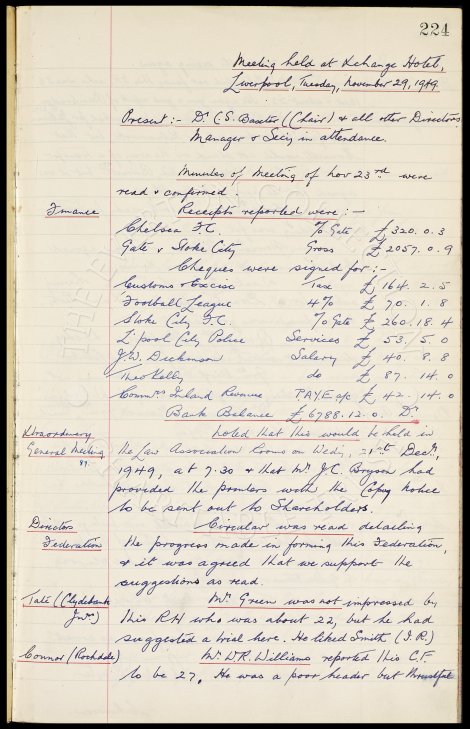 224
Meeting held at Exchange Hotel,
Liverpool, Tuesday, November 29, 1949.
Present :- Dr. C.S. Baxter (Chair) & all other Directors
Manager & Secy in attendance.
Minutes of Meeting of Nov 23rd were
read & confirmed.
Finance Receipts reported were :-
Chelsea F.C. % Gate £320.0.3
Gate v Stoke City Gross £2057.0.9
Cheques were signed for :-
Customs & Excise Tax £164.2.5
Football League 4% £70.1.8
Stoke City F.C. % Gate £260.18.4
L'pool City Police Services £53.5.0
J.W. Dickinson Salary £40.8.8
Theo Kelly do £87.14.0
Commrs Inland Revenue PAYE a/c £42.14.0
Bank Balance £6788.12.0 Dr
Xtraordinary Noted that this would be held in
General Meeting the Law Association Rooms on Wedy, 21st Decr,
89. 1949, at 7.30 & that Mr J.C. Bryson had
provided the printers with the Copy notice
to be sent out to Shareholders.
Directors Circular was read detailing
Federation the progress made in forming this Federation,
& it was agreed that we support the
suggestions as read.
Tate (Clydebank Mr. Green was not impressed by
Jnrs) this RH who was about 22, but he had
suggested a trial here. He liked Smith (I.R.)
Connor (Rochdale) Mr. W.R. Williams reported this C.F.
to be 27. He was a poor header but thrustful